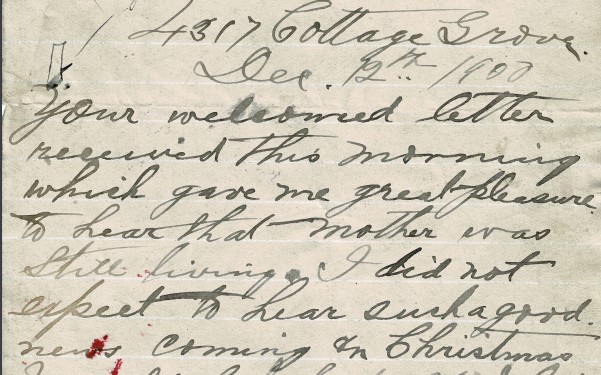 4317 Cottage Grove.
Dec. 12th 1900
Your welcomed letter
received this morning
which gave me great pleasure.
to hear that mother was
still living. I did not
expect to hear such a good.
news coming on Christmas